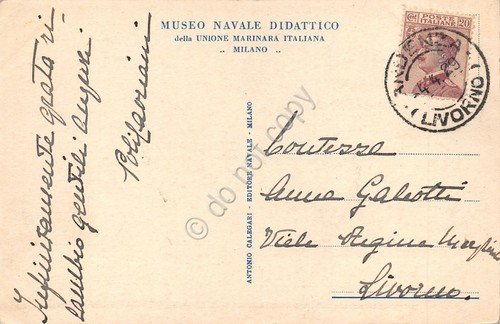 MUSEO NAVALE DIDATTICO
della UNIONE MARINARA ITALIANA
.. MILANO ..
POSTE ITALIANE
20
ARDENZA
(LIVORNO)
Infinitamente grata ri-
cambio gentili auguri
ANTONIO CALEGARI - EDITORE NAVALE - MILANO
Contessa
Anna Galeotti
Viale Regina
Livorno
© do not copy